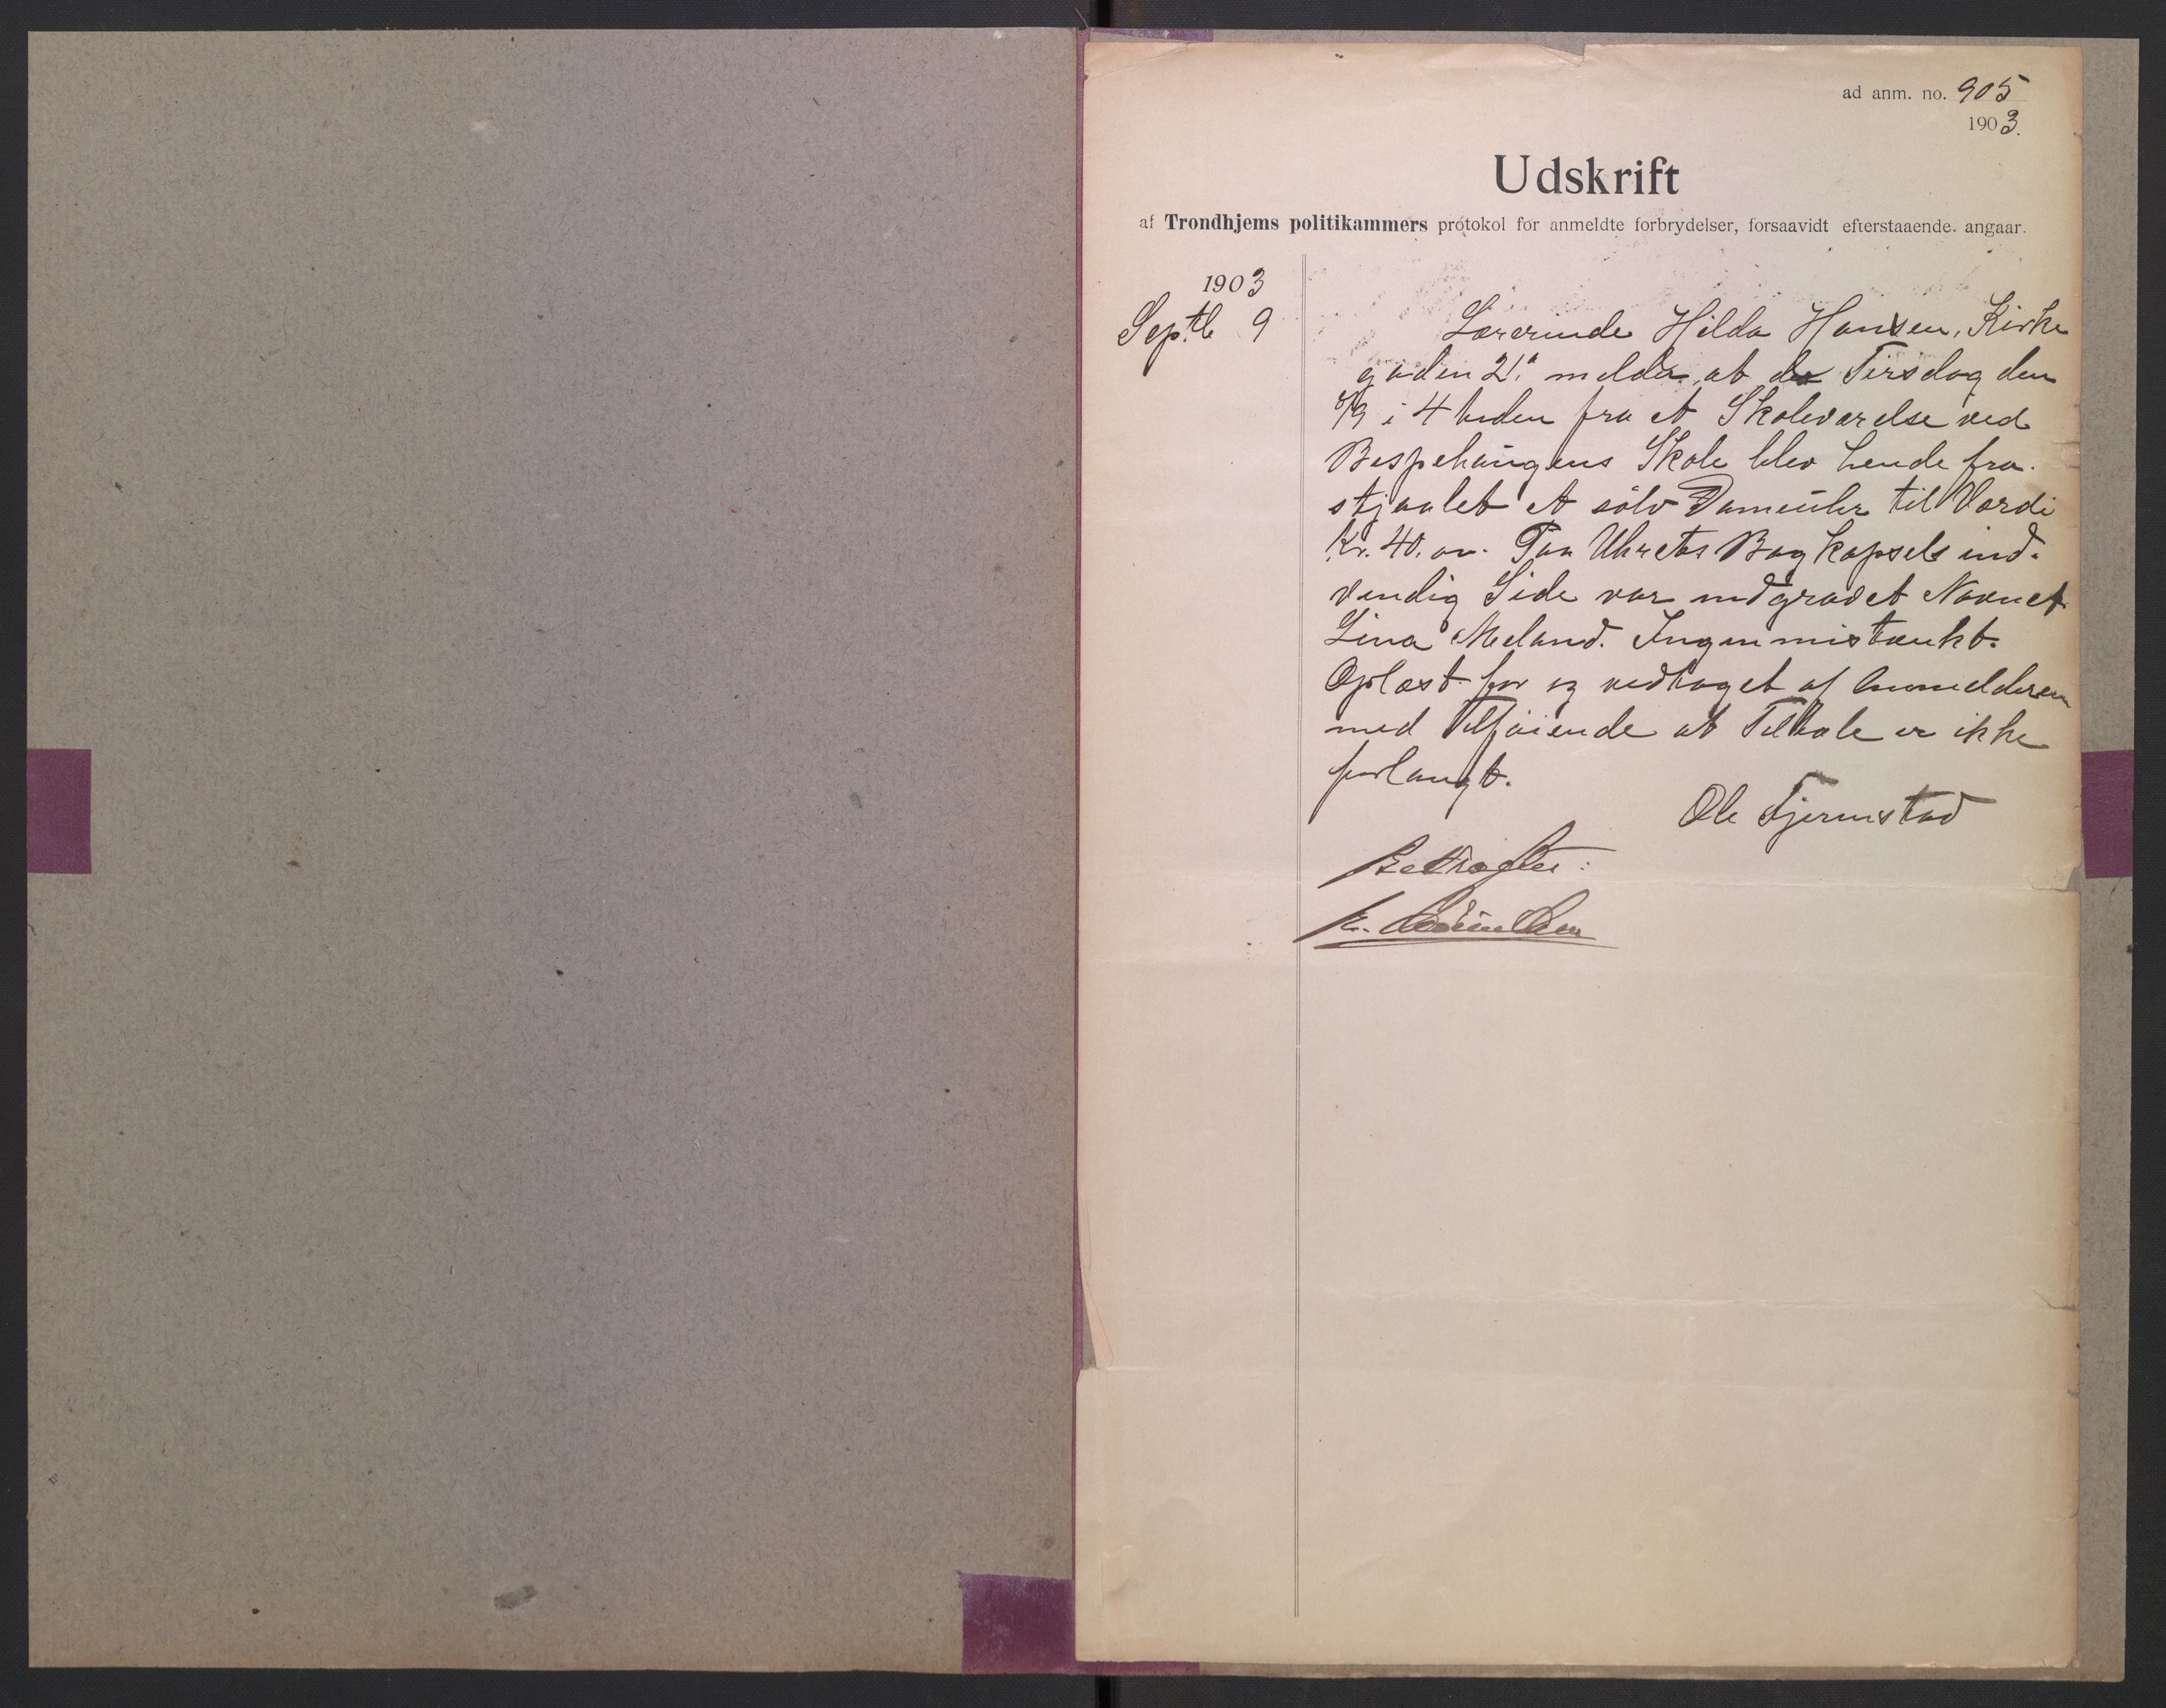 ad anm. no. 905
1903.
Udskrift
af Trondhjems politikammers protokol for anmeldte forbrydelser, forsaavidt efterstaaende angaar.
1903
Septb 9
Lærerinde Hilda Hansen, Kirke
gaden 21a melder, at de Tirsdag den
8/9 i 4 tiden fra et Skoleværelse ved
Bispehaugens Skole blev hende fra-
stjaalet et sølv Dameuhr til Værdi
Kr. 40. Paa Uhrets Bagkapsels ind-
vendig Side var indgravet Navnet
Lina Meland. Ingen mistænkt.
Oplæst for og vedtaget af Anmelderen
med Tilføiende at Tiltale er ikke
forlangt.
Ole Fjermstad
Bekræftes: